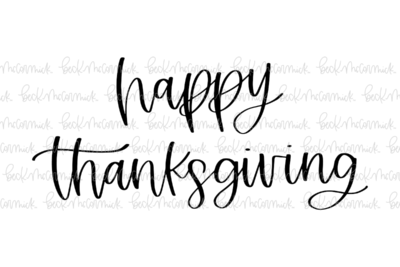 happy
thanksgiving